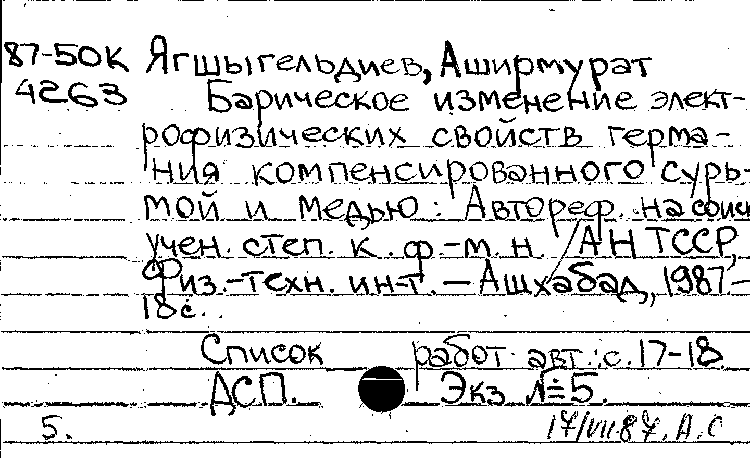 87-50К Ягшыгельдиев, Аширмурат
4263 Барическое изменение элект-
рофизических свойств герма-
ния компенсированного сурь-
мой и медью: Автореф. на соиск
учен. степ. к. ф.-м. н. /АН ТССР,
Физ.-техн. ин-т. — Ашхабад, 1987.-
18 с..
Список работ авт.: с. 17-18
ДСП. Экз №5.
5. 17/VII 87. А.С